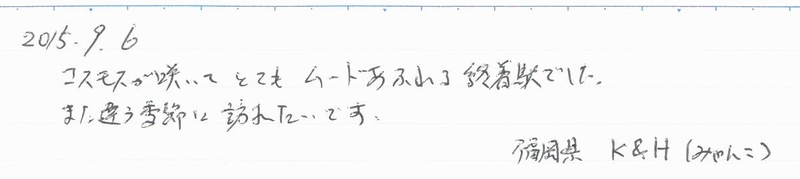 2015.9.6
コスモスが咲いて とても ムードあふれる 終着駅でした。
また違う季節に訪れたいです。
福岡県 K&H (みゃんこ)